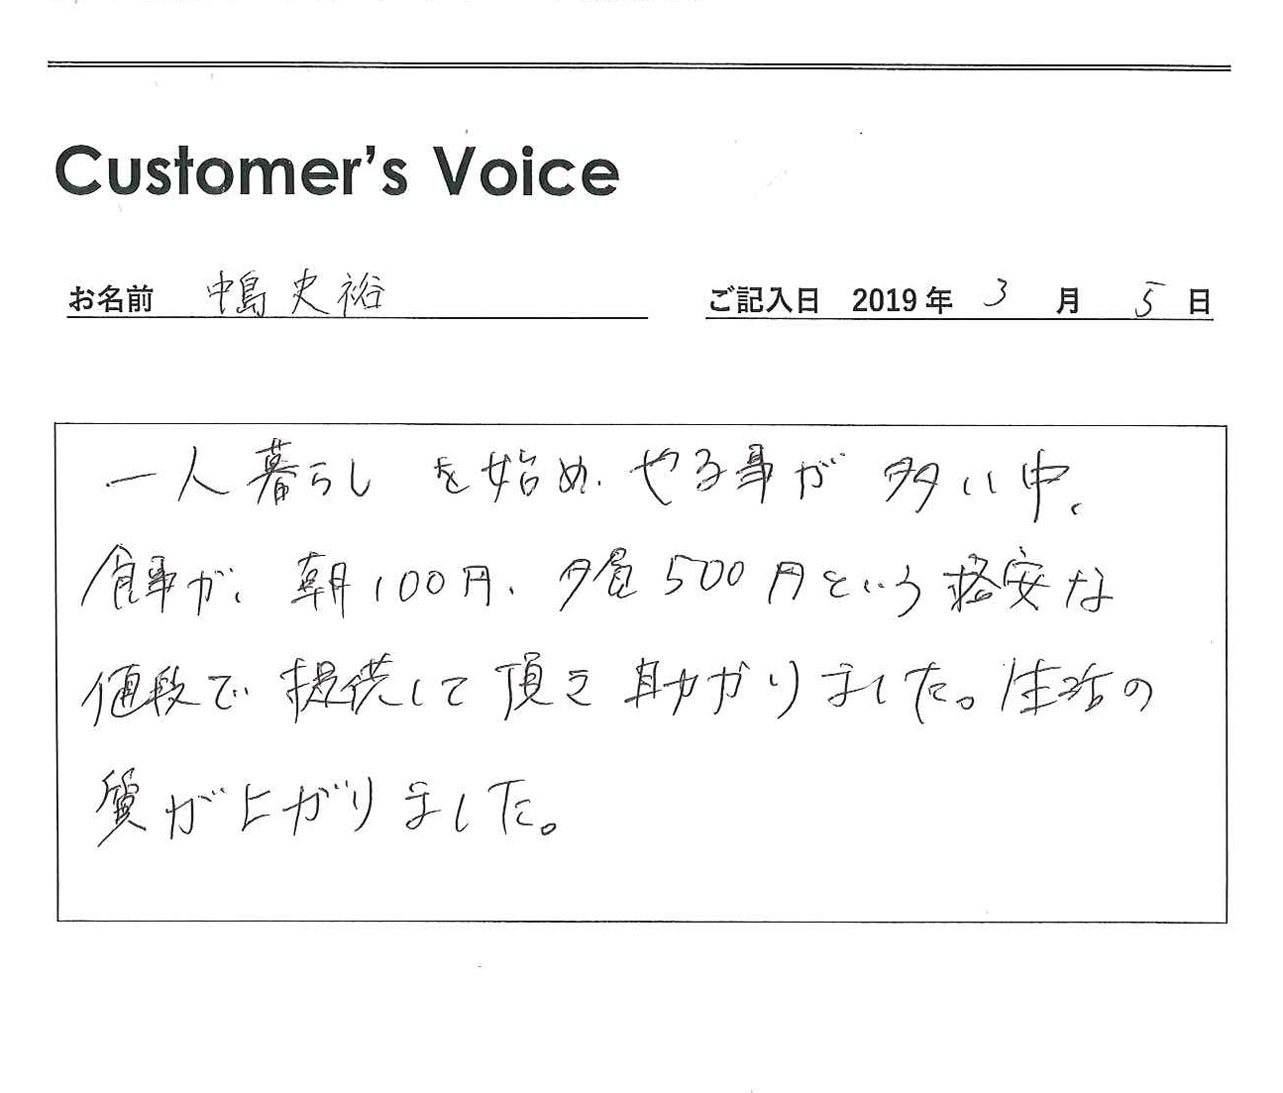 Customer's Voice
お名前 中島 史裕 ご記入日 2019年 3 月 5 日
一人暮らしを始め、やる事が多い中、
食事が、朝100円、夕食500円という格安な
値段で提供して頂き助かりました。生活の
質が上がりました。